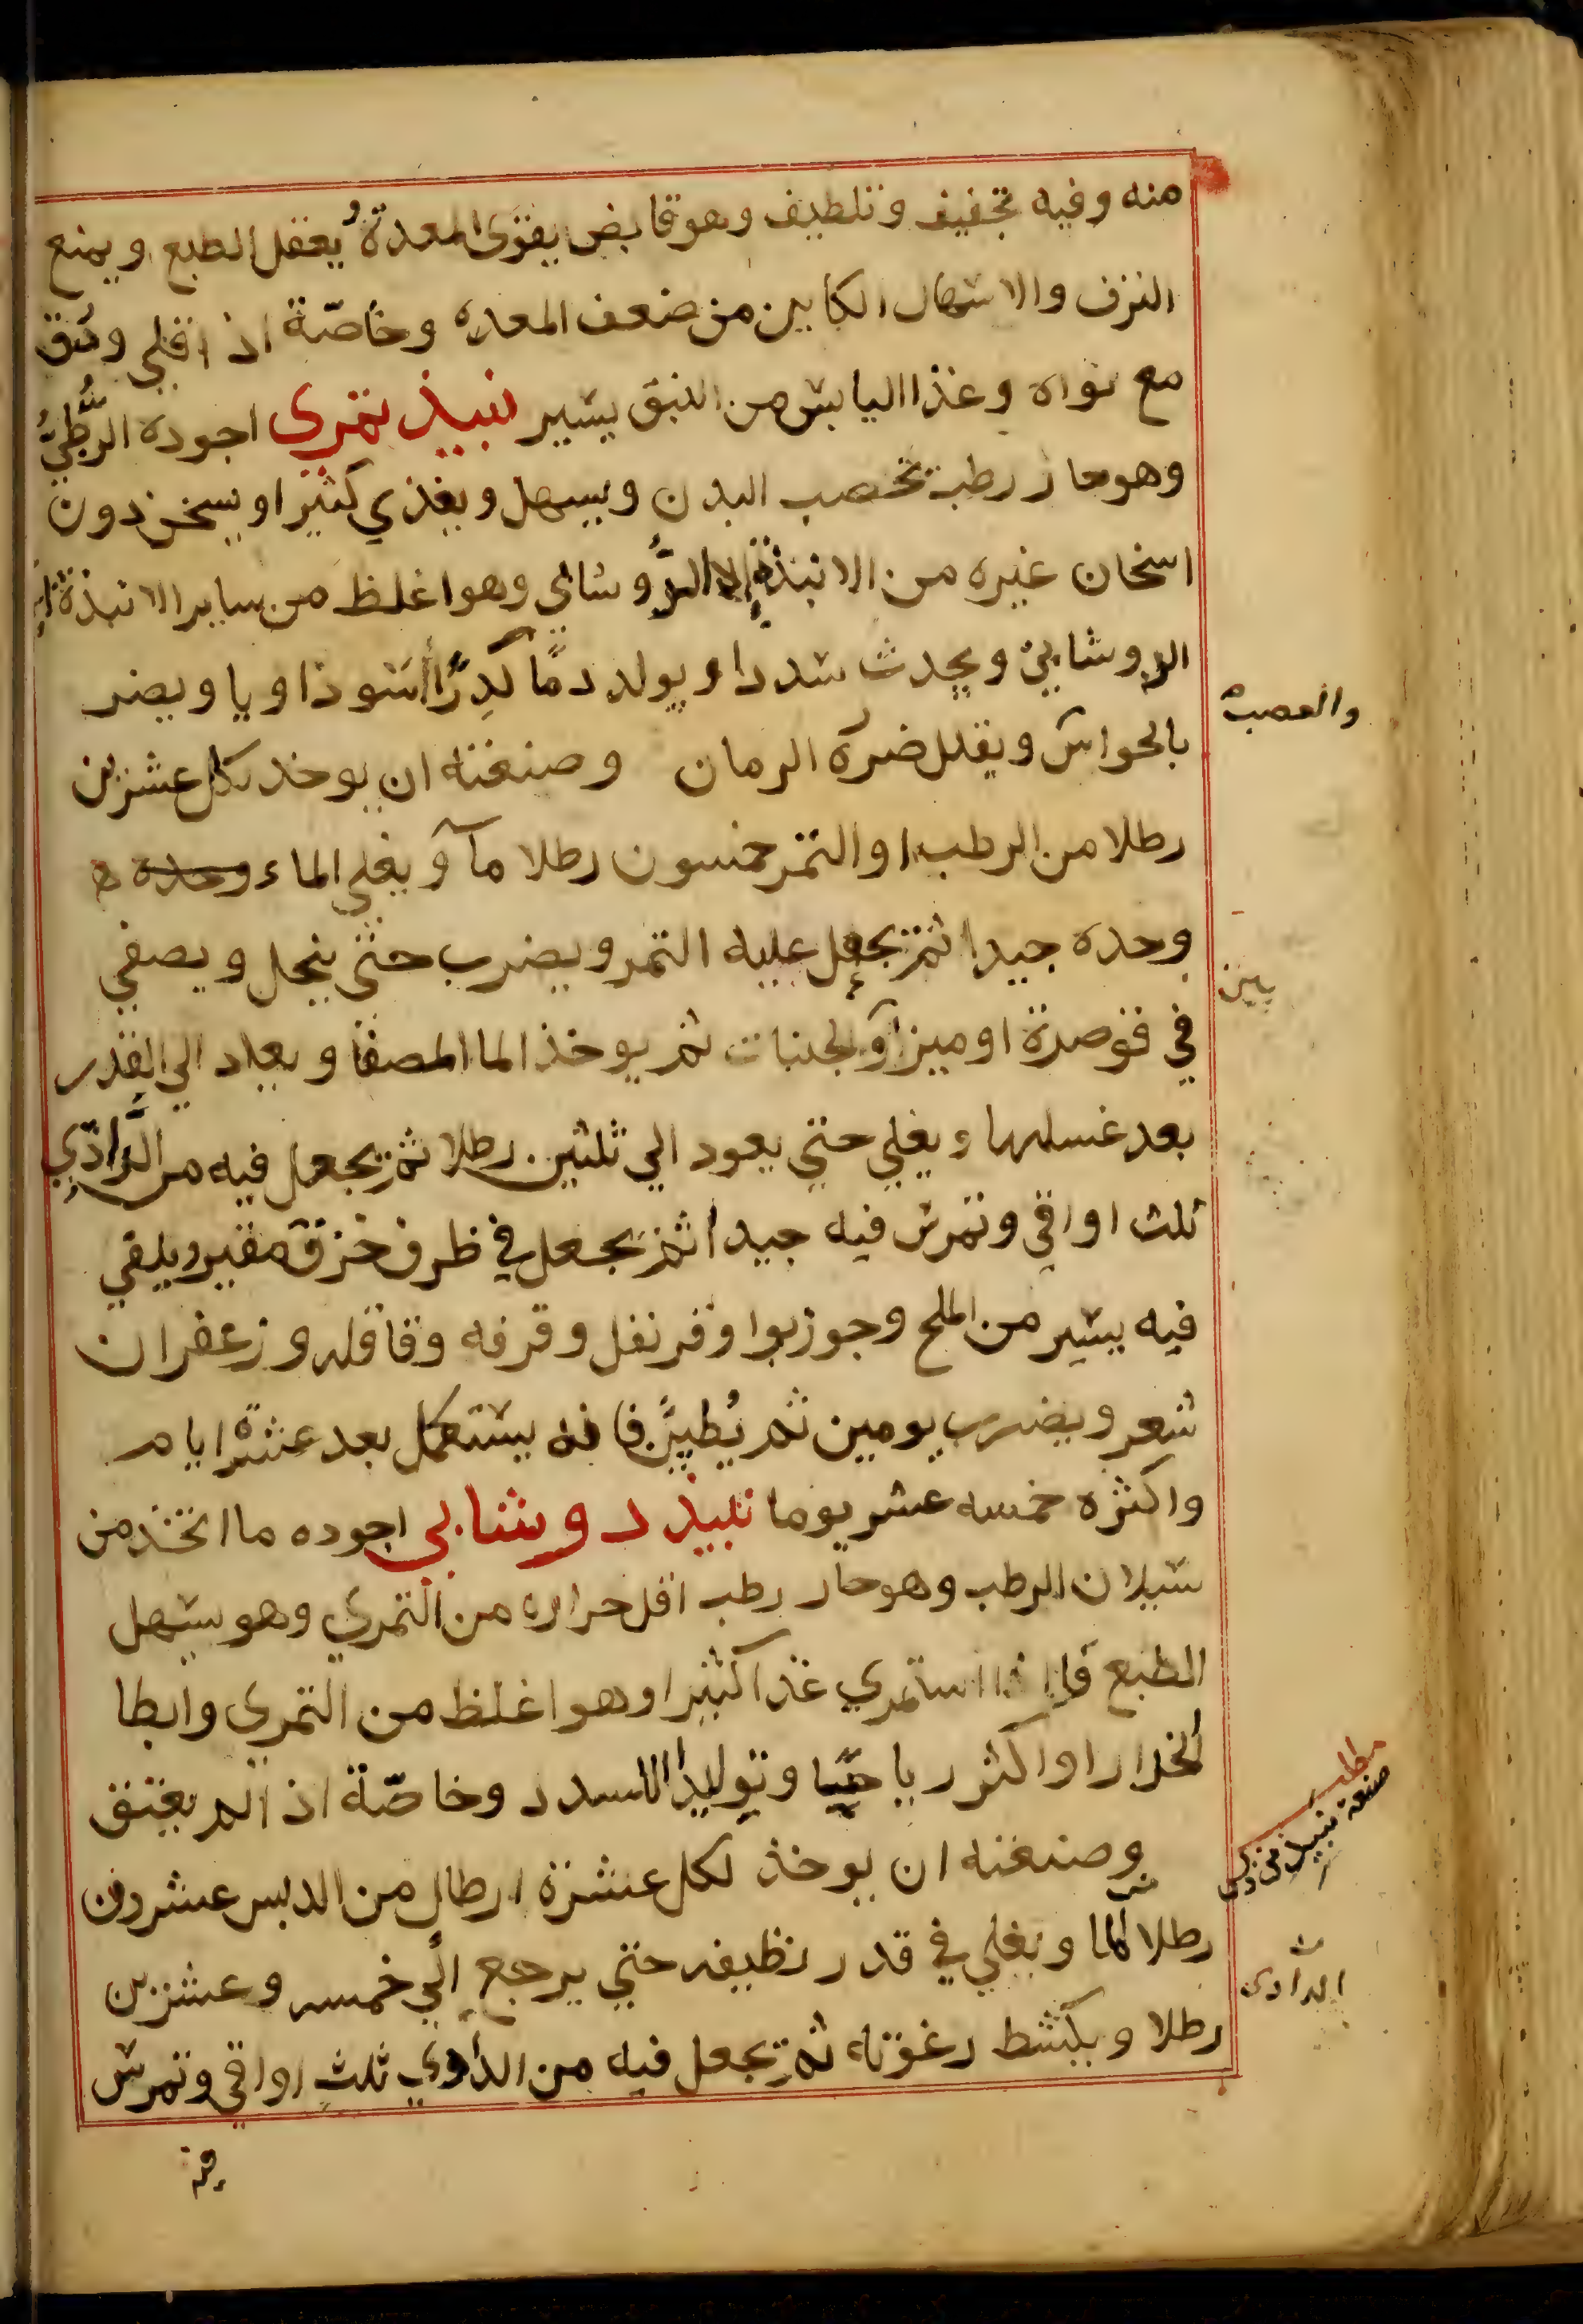 منه وفيه تجفيف وتلطيف وهو قابض يقوى المعدة يُعقل الطبع ويمنع
النزف والاسهال الكاين من ضعف المعده وخاصّة اذ اقلي ودُق
مع نواه وغذا اليابس من النبق يسير نبيذ تمرى اجوده الرُّطبيُّ
وهو حار رطب تخصب البدن ويسهل ويغذي كثيرا ويسخن دون
اسخان غيره من الانبذة الا الدُّوشابي وهو اغلظ من ساير الانبذة
الدوشابي ويحدث سددا ويولد دمًا كَدِرًا أسودَاويا ويضر
بالحواس ويقلل ضرره الرمان وصنعته ان يوخد لكل عشرين
رطلا من الرطب او التمر خمسون رطلا مآ ويغلي الماء وحده
وحده جيدا ثم يجعل عليه التمر ويضرب حتى ينحل ويصفي
في قوصرة او ميزر ثم يوخذ الما المصفا ويعاد الي القدر
بعد غسلها ويغلي حتي يعود الي ثلثين رطلا ثم يجعل فيه من الدَّاذي
ثلث اواقي وتمرس فيه جيدا ثم يجعل في ظرف خزف مقير ويلقي
فيه يسير من الملح وجوزبوا وقرنفل وقرفه وقاقله وزعفران
شعر ويضرب يومين ثم يُطيَّن فانه يستعمل بعد عشرة ايام
واكثره خمسه عشر يوما نبيذ دوشابي اجوده ما اتخذ من
سيلان الرطب وهو حار رطب اقل حراره من التمري وهو يسهل
الطبع فاذا استمري غذا كثيرا وهو اغلظ من التمرى وابطا
انحدارا واكثر رياحيا وتوليدا للسدد وخاصّة اذ الم يعتق
وصنعته ان يوخذ لكل عشرة ارطال من الدبس عشرون
رطلا الما ويغلي في قدر نظيفه حتي يرجع الي خمسه وعشرين
رطلا ويكشط رغوته ثم يجعل فيه من الداذي ثلث اواقي وتمرس
فيه
والعصب
مطلب
صنعة نبيذ
الدادى